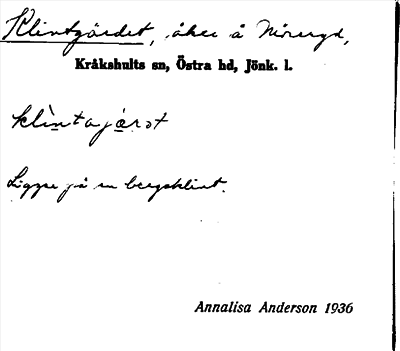 Klintgärdet, åker å Möreryd,
Kråkshults sn, Östra hd, Jönk. l.
klìntajæ̀rət
Ligger på en bergsklint.
Annalisa Anderson 1936